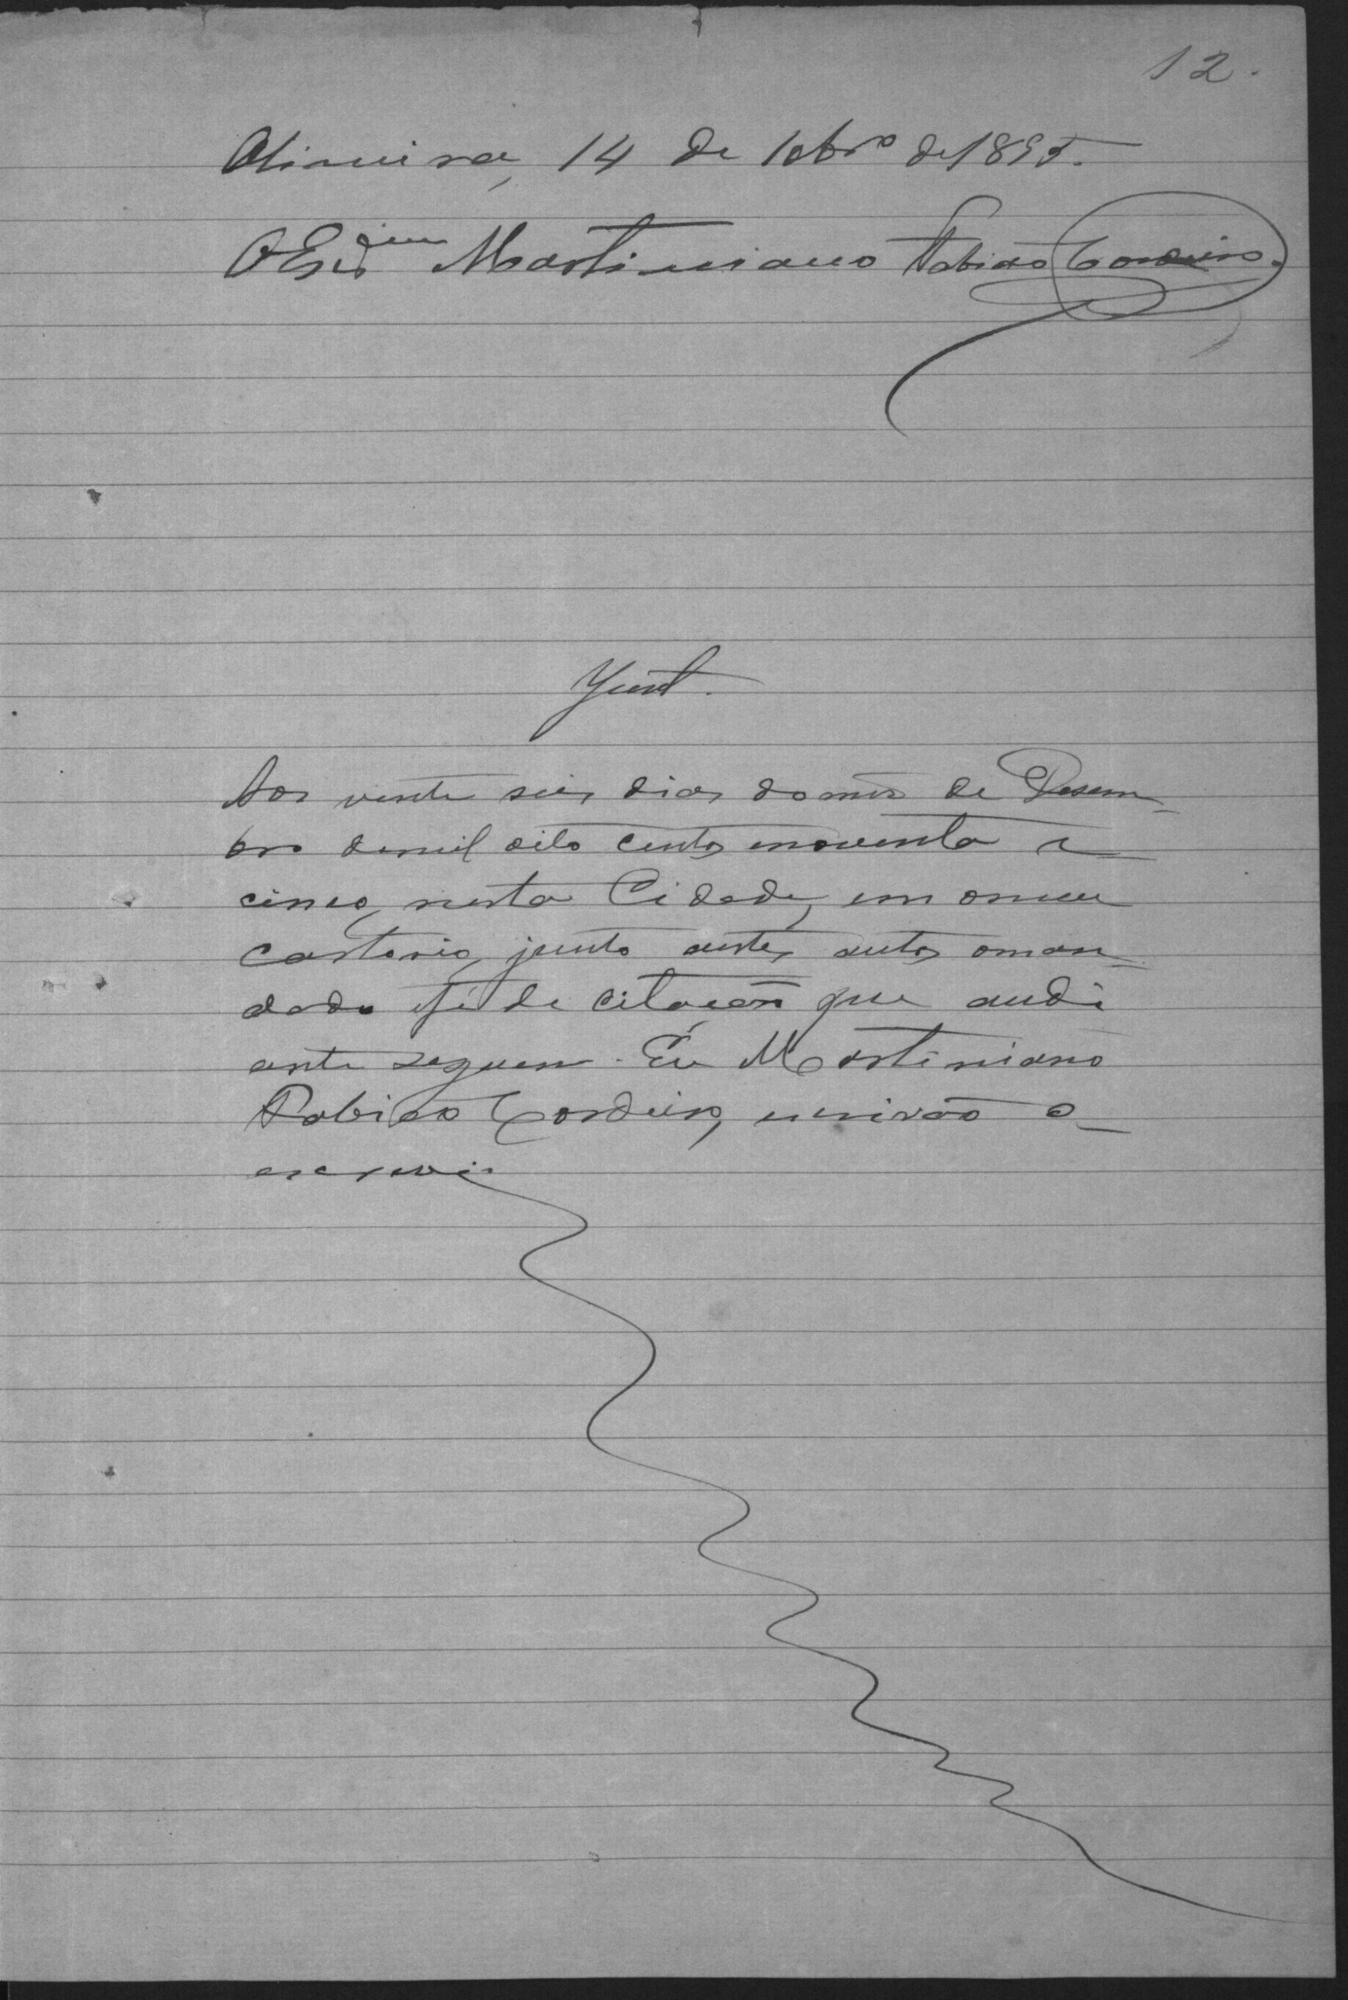 12.
14 de 10bro de 1895.
O Esc Martiniano Fabião Cordeiro.
Junt.
Aos vinte seis dias do mês de Desem-
bro de mil oito centos e noventa e
cinco, nesta Cidade, em o meu
cartorio, junto a estes autos o man-
dado e fé de citação que audi
ante seguem. Eu Martiniano
Fabião Cordeiro, escrivão o
escrevi.